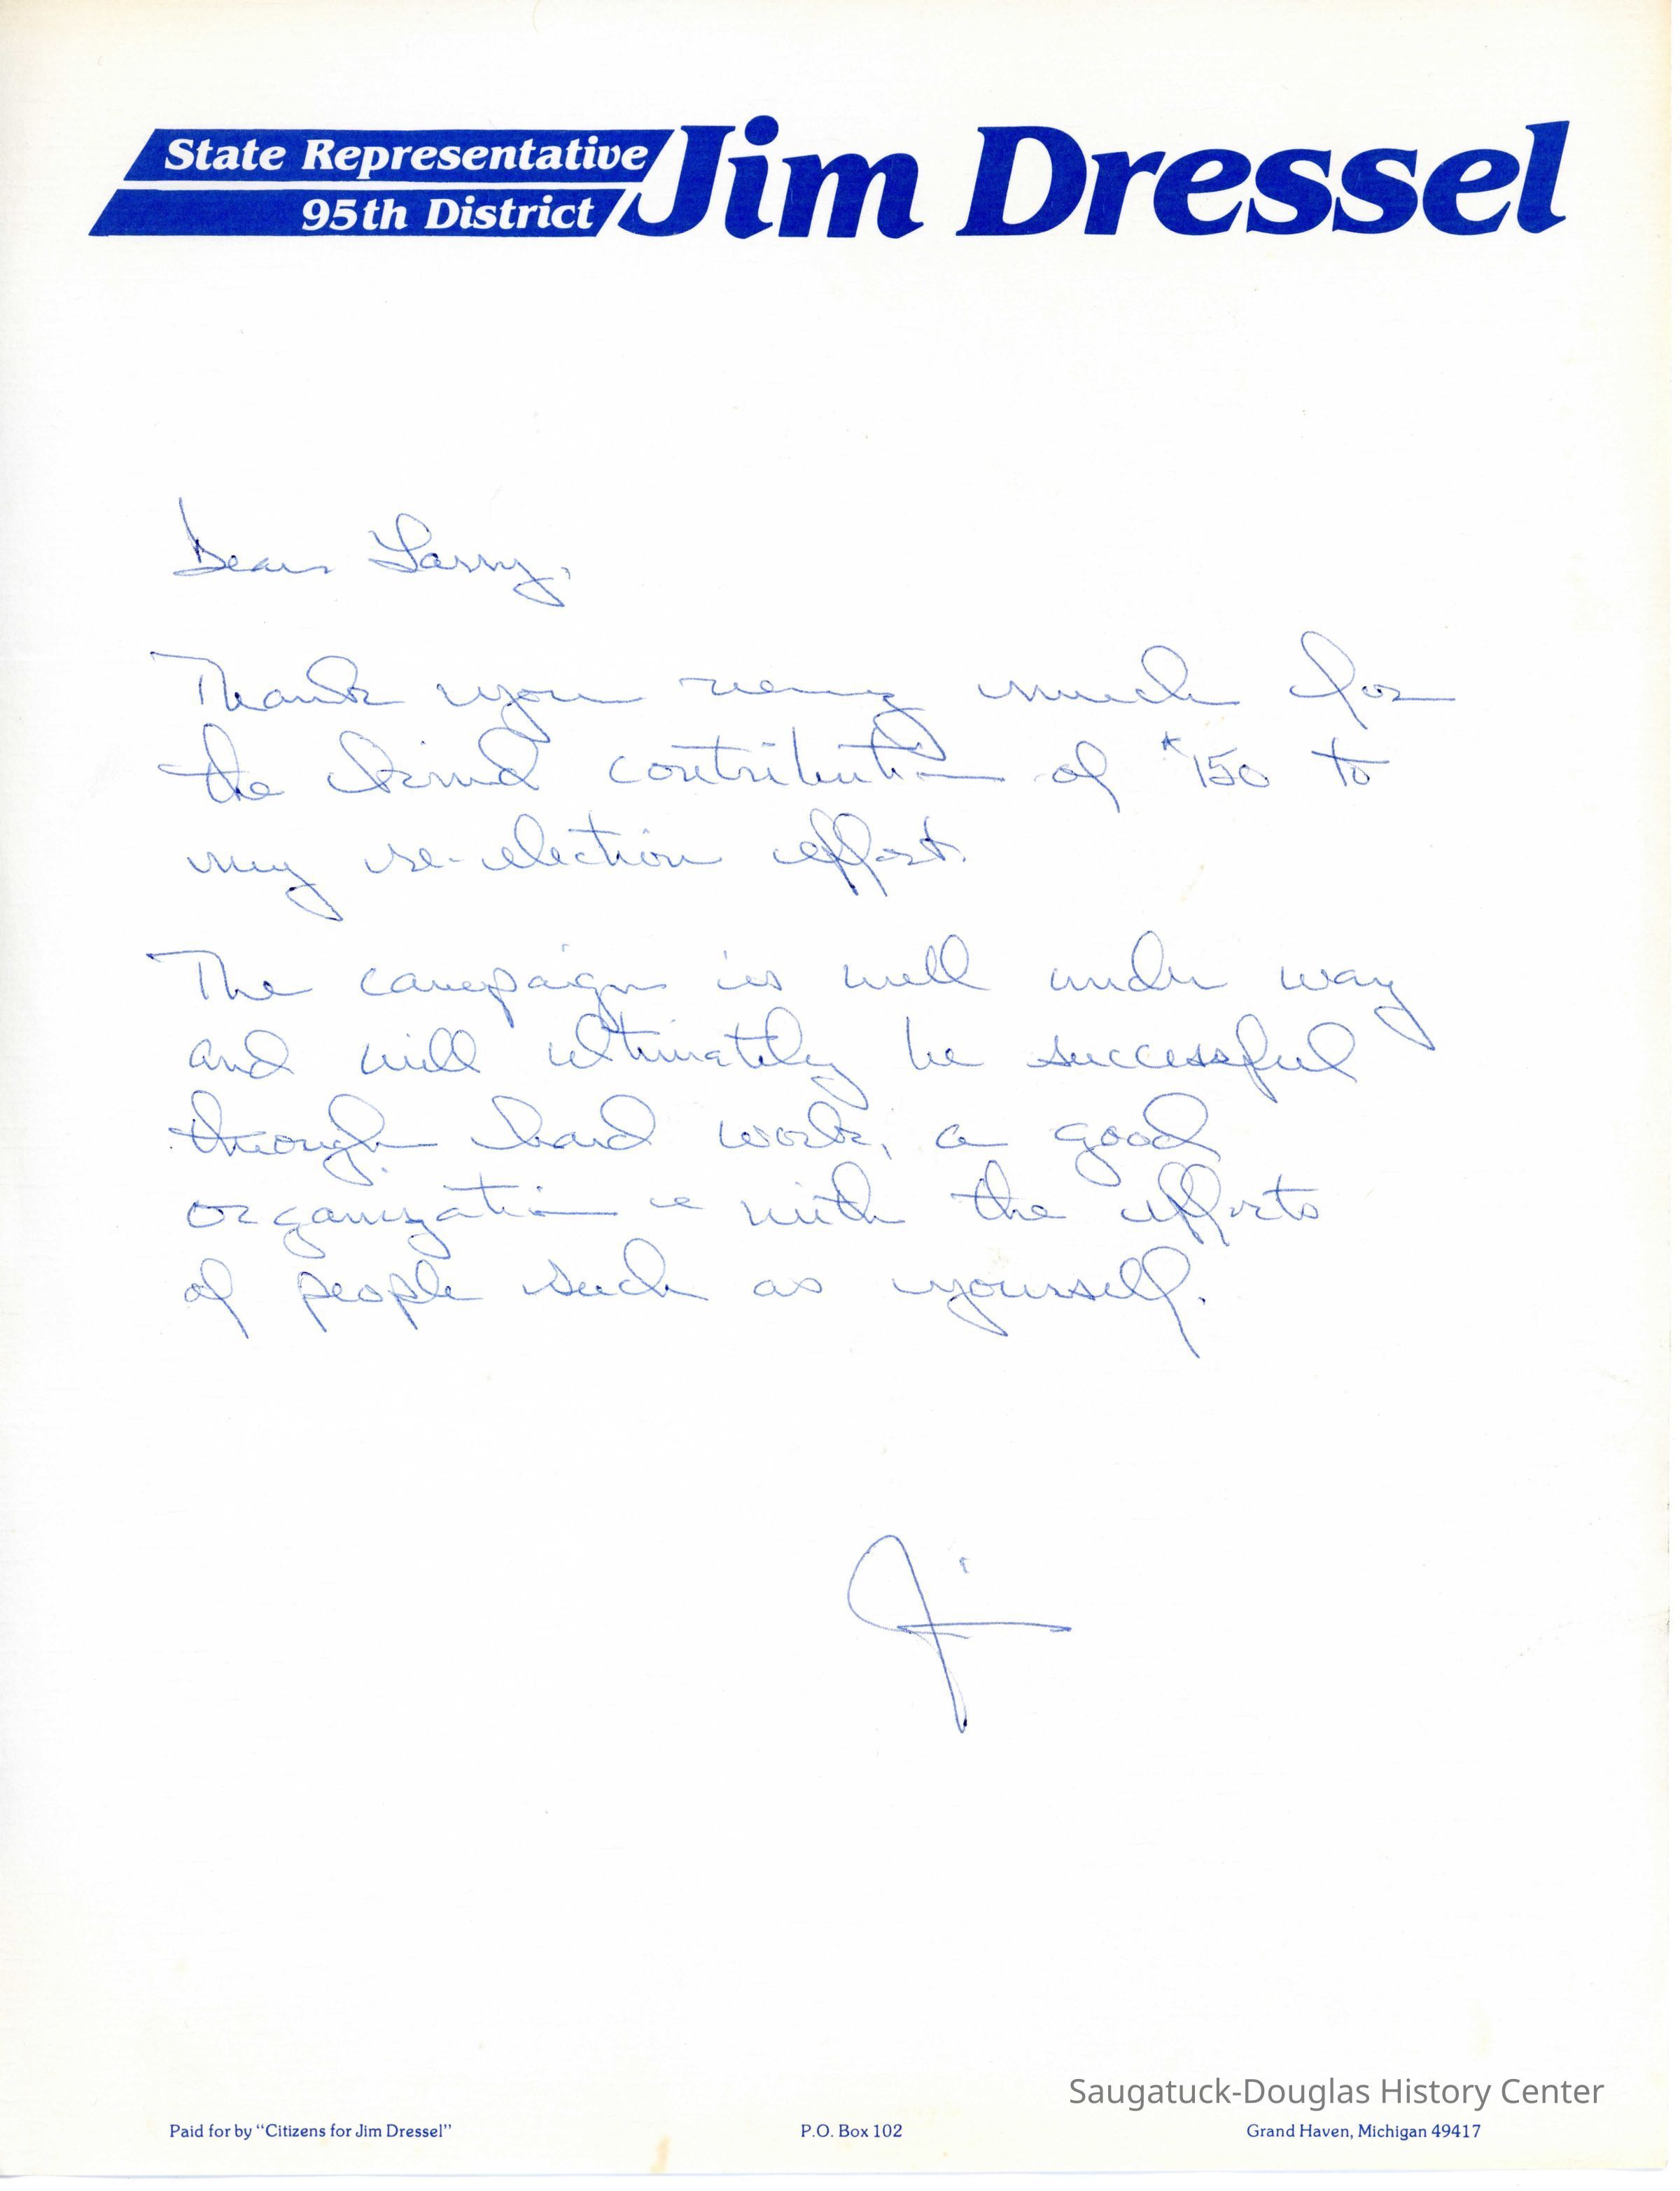 State Representative
95th District
Jim Dressel
Dear Larry,
Thank you very much for
the kind contribution of $150 to
my re-election effort.
The campaign is well under way
and will ultimately be successful
through hard work, a good
organization & with the efforts
of people such as yourself.
Jim
Saugatuck-Douglas History Center
Paid for by "Citizens for Jim Dressel" P.O. Box 102 Grand Haven, Michigan 49417